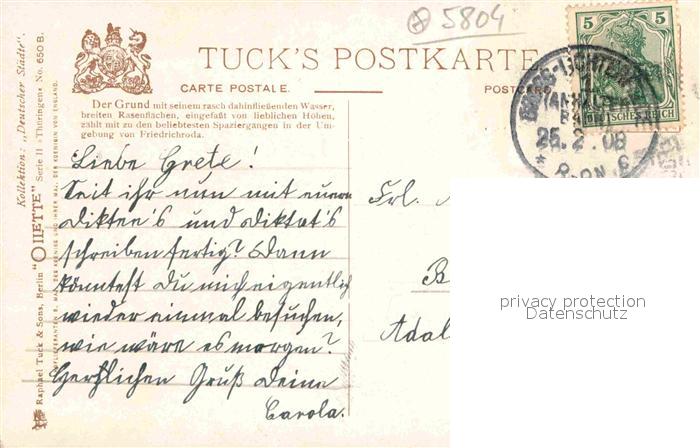 5804
TUCK'S POSTKARTE
CARTE POSTALE.
POSTCARD
Der Grund mit seinem rasch dahinfließenden Wasser,
breiten Rasenflächen, eingefaßt von lieblichen Höhen,
zählt mit zu den beliebtesten Spaziergängen in der Um-
gebung von Friedrichroda.
Kollektion: „Deutscher Städte".
Serie II »Thüringen« No. 650 B.
Raphael Tuck & Sons, Berlin "OILETTE"
5 5
DEUTSCHES REICH
25.2.08
Liebe Grete!
Seid ihr nun mit euern
Dikten's und Diktat's
schreiben fertig? Dann
könntest Du mich eigentlich
wieder einmal besuchen,
wie wäre es morgen?
Herzlichen Gruß Deine
Carola.
Frl.
B
Adal
privacy protection
Datenschutz